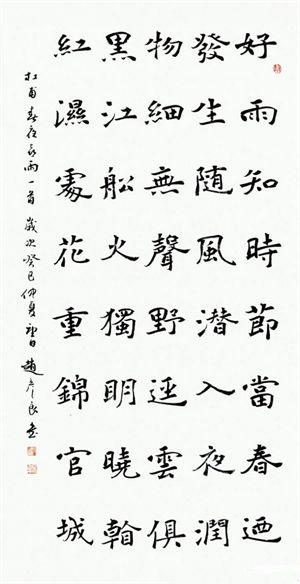 好雨知時節當春迺
發生随風潜入夜潤
物細無聲野逕雲俱
黑江船火獨明曉看
紅濕處花重錦官城
杜甫春夜喜雨一首歲次癸巳仲夏望日趙彥良書